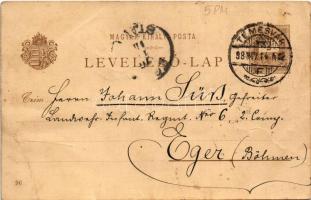 5 PM
MAGYAR KIRÁLYI POSTA
LEVELEZŐ-LAP
TEMESVÁR
Czim Herrn Johann Süß Gefreiter
Landwehr-Infant. Regmt. Nro 6 2. Comp.
Eger (Böhmen)